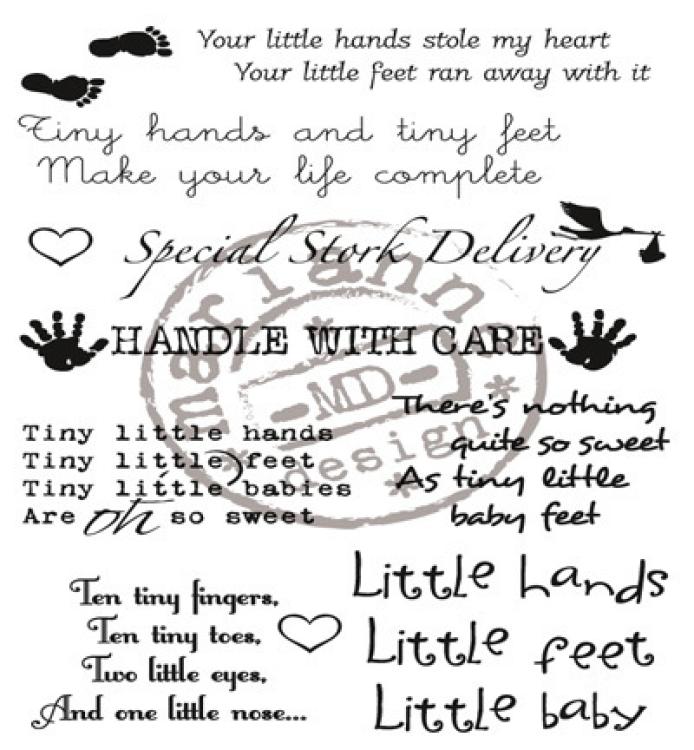 Your little hands stole my heart
Your little feet ran away with it
Tiny hands and tiny feet
Make your life complete
Special Stork Delivery
HANDLE WITH CARE
marianne
MD
design
There's nothing
quite so sweet
As tiny little
baby feet
Tiny little hands
Tiny little feet
Tiny little babies
Are oh so sweet
Ten tiny fingers,
Ten tiny toes,
Two little eyes,
And one little nose...
Little hands
Little feet
Little baby